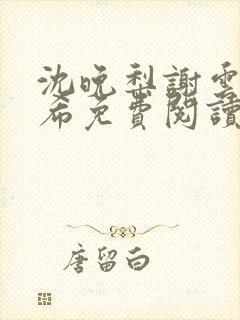 沈晚梨謝雲
希免費閱讀
唐留白